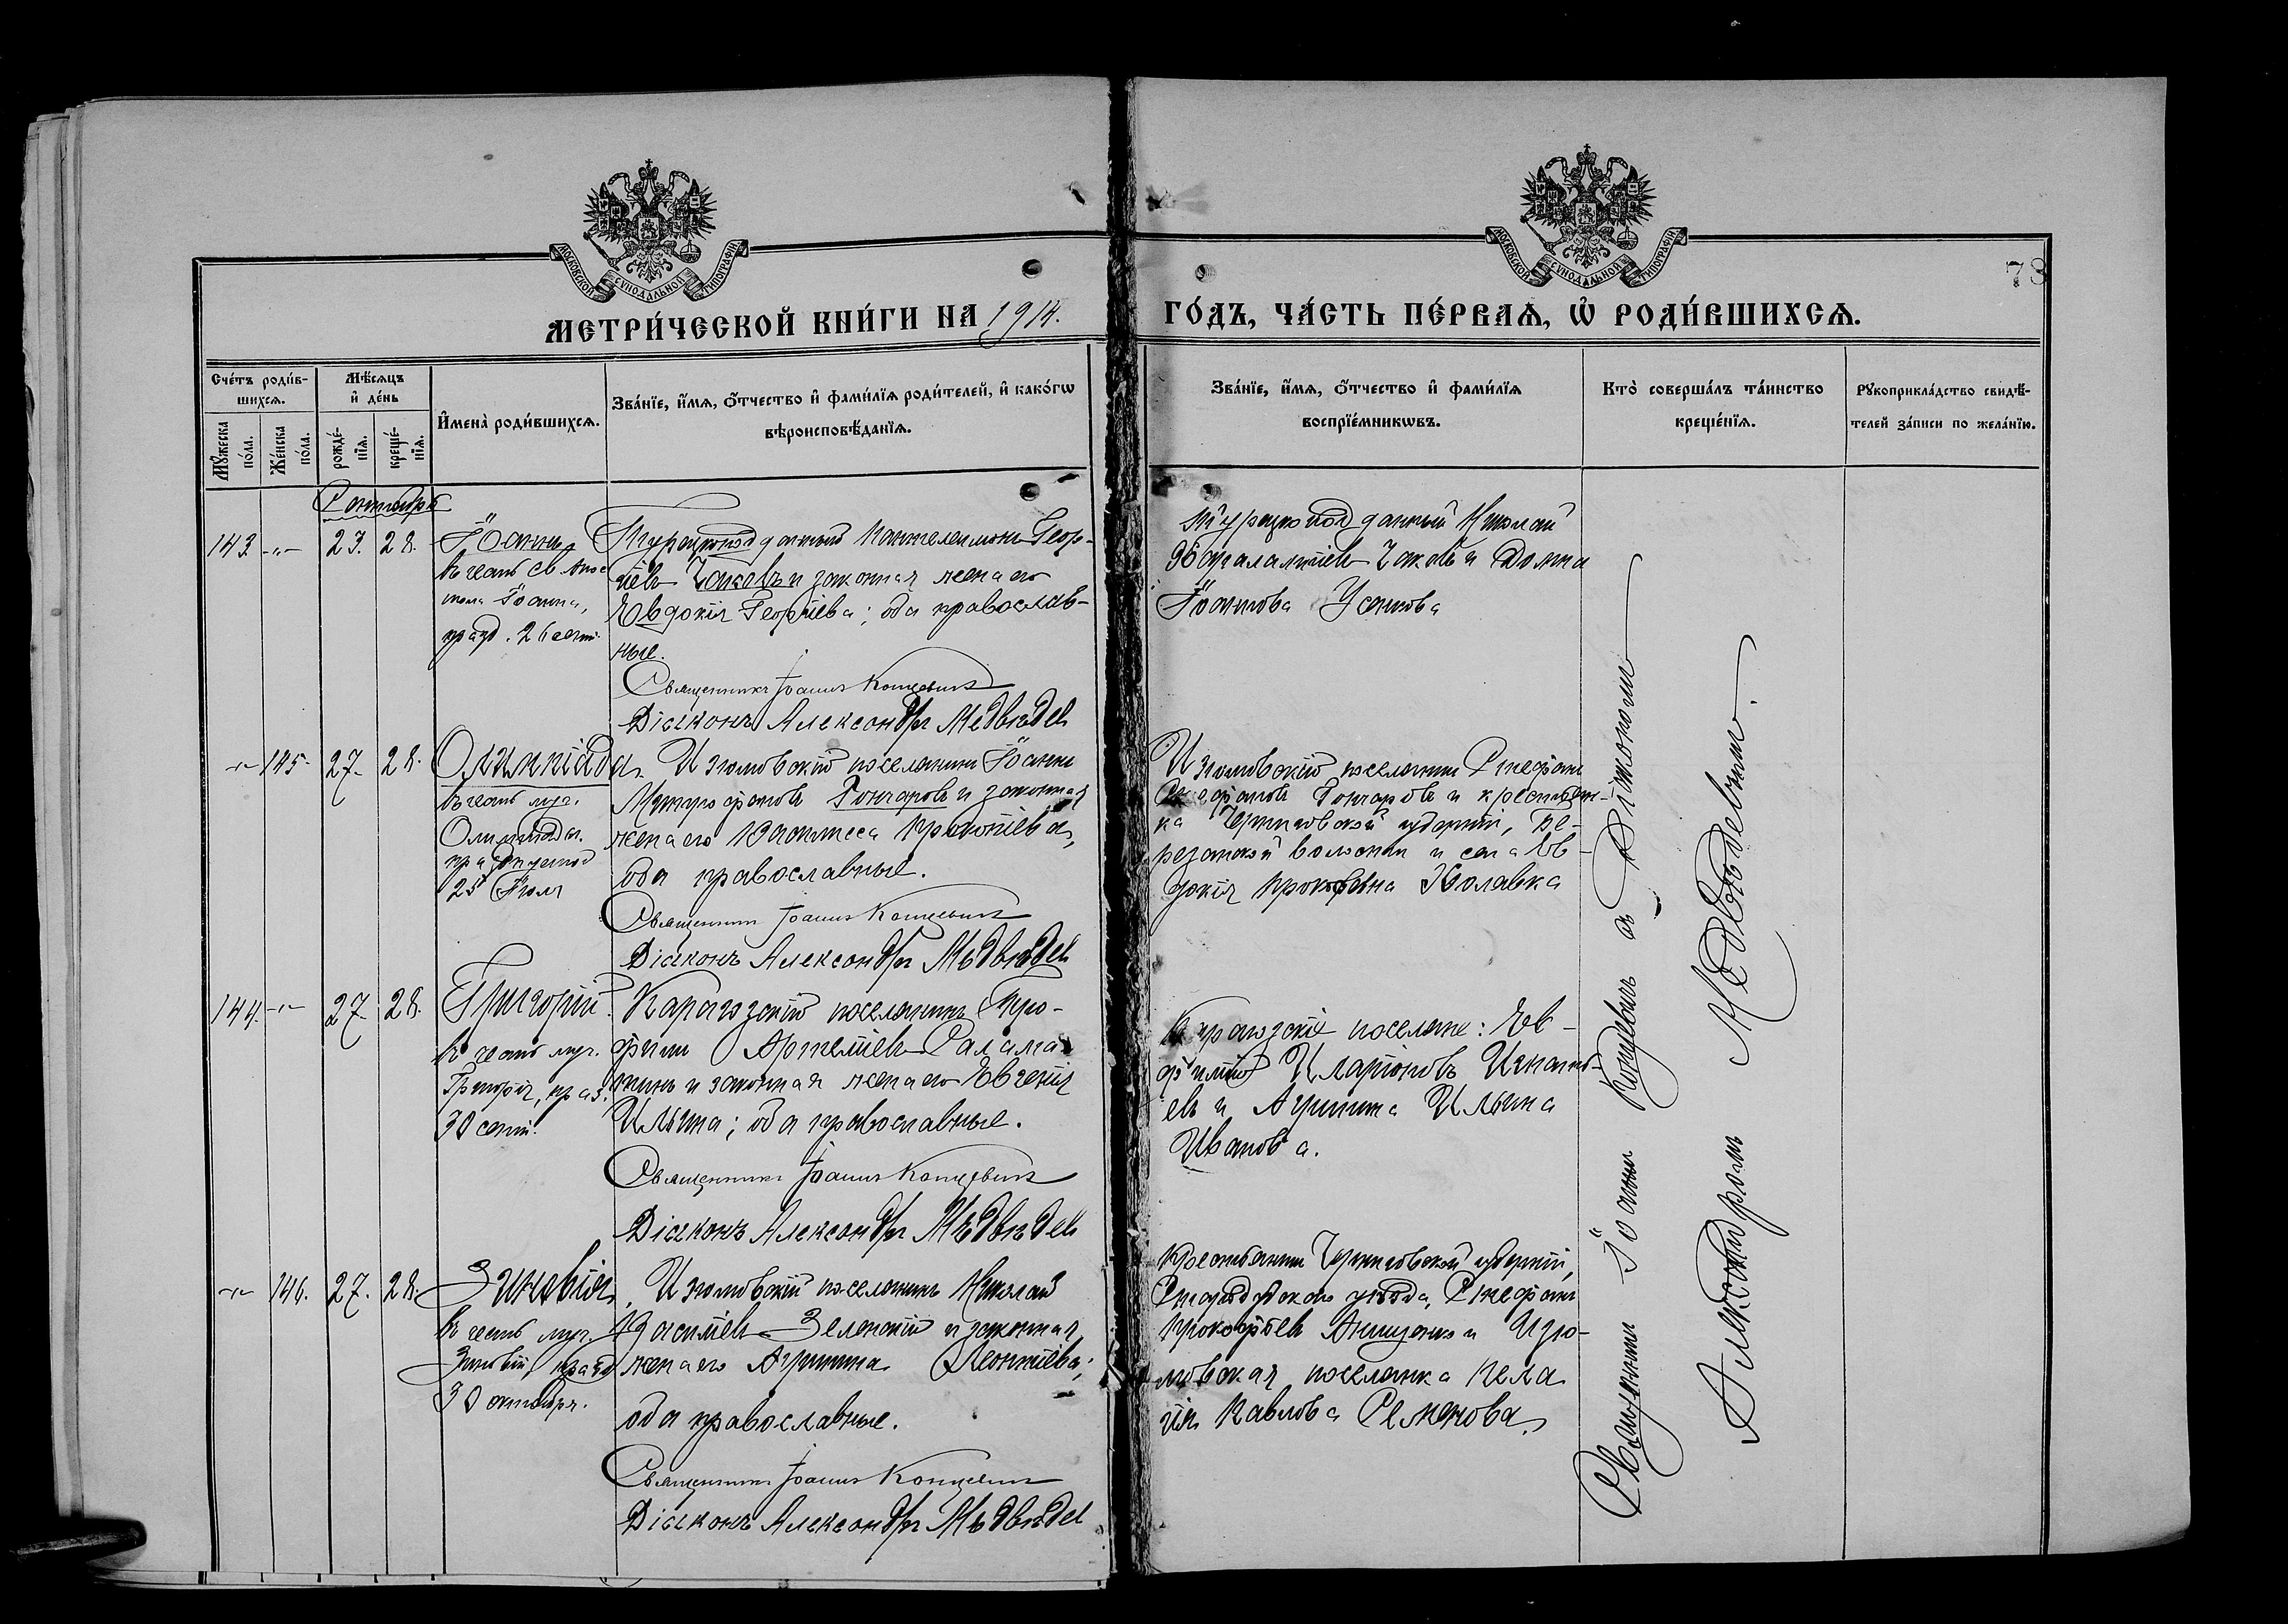 МОСКОВСКОЙ СУНОДАЛЬНОЙ ТИПОГРАФІИ
МОСКОВСКОЙ СУНОДАЛЬНОЙ ТИПОГРАФІИ
78
МЕТРИ́ЧЕСКОЙ КНИ́ГИ НА 1914.
ГО́ДЪ, ЧА́СТЬ ПЕ́РВАѦ, Ѡ҆ РОДИ́ВШИХСѦ.
Сче́тъ роди́в-
шихсѧ.
Мꙋ́жеска
по́ла.
Же́нска
по́ла.
Мѣ́сѧцъ
и҆ де́нь
рожде́-
нїѧ.
креще́-
нїѧ.
И҆мена̀ роди́вшихсѧ.
Зва́нїе, и҆́мѧ, ѻ҆́тчество и҆ фами́лїѧ роди́телей, и҆ како́гѡ
вѣроисповѣ́данїѧ.
Зва́нїе, и҆́мѧ, ѻ҆́тчество и҆ фами́лїѧ
воспрїе́мникѡвъ.
Кто̀ соверша́лъ та́инство
креще́нїѧ.
Рꙋкоприкла́дство свидѣ́-
телей за́писи по жела́нїю.
Сентября
143. -"- 27. 28. Іоаннъ,
въ честь св. Апос-
тола Іоанна,
празд. 26 сент.
Турецкоподданный Пантелеимонъ Геор-
гіевъ Чаковъ и законная жена его
Евдокія Георгіева; оба православ-
ные.
Священникъ Іоаннъ Концевичъ
Діаконъ Александръ Медвѣдев
Турецкоподданный Николай
Чаковъ и Домна
Іоаннова Усатова
-"- 145. 27. 28. Олимпіада.
въ честь муч.
Олимпіады,
празднуемой
25 Іюля
Измовскій поселянинъ Іоаннъ
Митрофановъ Гончаровъ и законная
жена его Васса Прокопіева,
оба православные.
Священникъ Іоаннъ Концевичъ
Діаконъ Александръ Медвѣдев
поселянинъ Стефанъ
Стефановъ Гончаровъ и крестьян-
ка Черниговской губерніи, Бе-
резанской волости и села Ев-
докія Прокофьевна Холавка
144. -"- 27. 28. Григорій.
въ честь муч.
Григорія, праз.
30 сент.
Карагюзскій поселянинъ Тро-
фимъ Артеміевъ Салама-
тинъ и законная жена его Евгенія
Ильина; оба православные.
Священникъ Іоаннъ Концевичъ
Діаконъ Александръ Медвѣдев
Карагюзскіе поселяне: Ев-
фимій Иларіоновъ Игнать-
евъ и Агрипина Ильина
Иванова.
-"- 146. 27. 28. Зиновія,
въ честь муч.
Зиновіи, празд.
30 октября.
поселянинъ Николай
Василіевъ Зеленскій и законная
жена его Агрипина Леонтіева;
оба православные.
Священникъ Іоаннъ Концевичъ
Діаконъ Александръ Медвѣдев
Крестьянинъ Черниговской губерніи,
Стародубскаго уѣзда, Стефанъ
Прокофьевъ Анищенко и Изю-
мовская поселянка Пела-
гія Павлова Семенова.
Священникъ Іоаннъ Концевичъ съ Діакономъ
Александромъ Медвѣдевымъ.